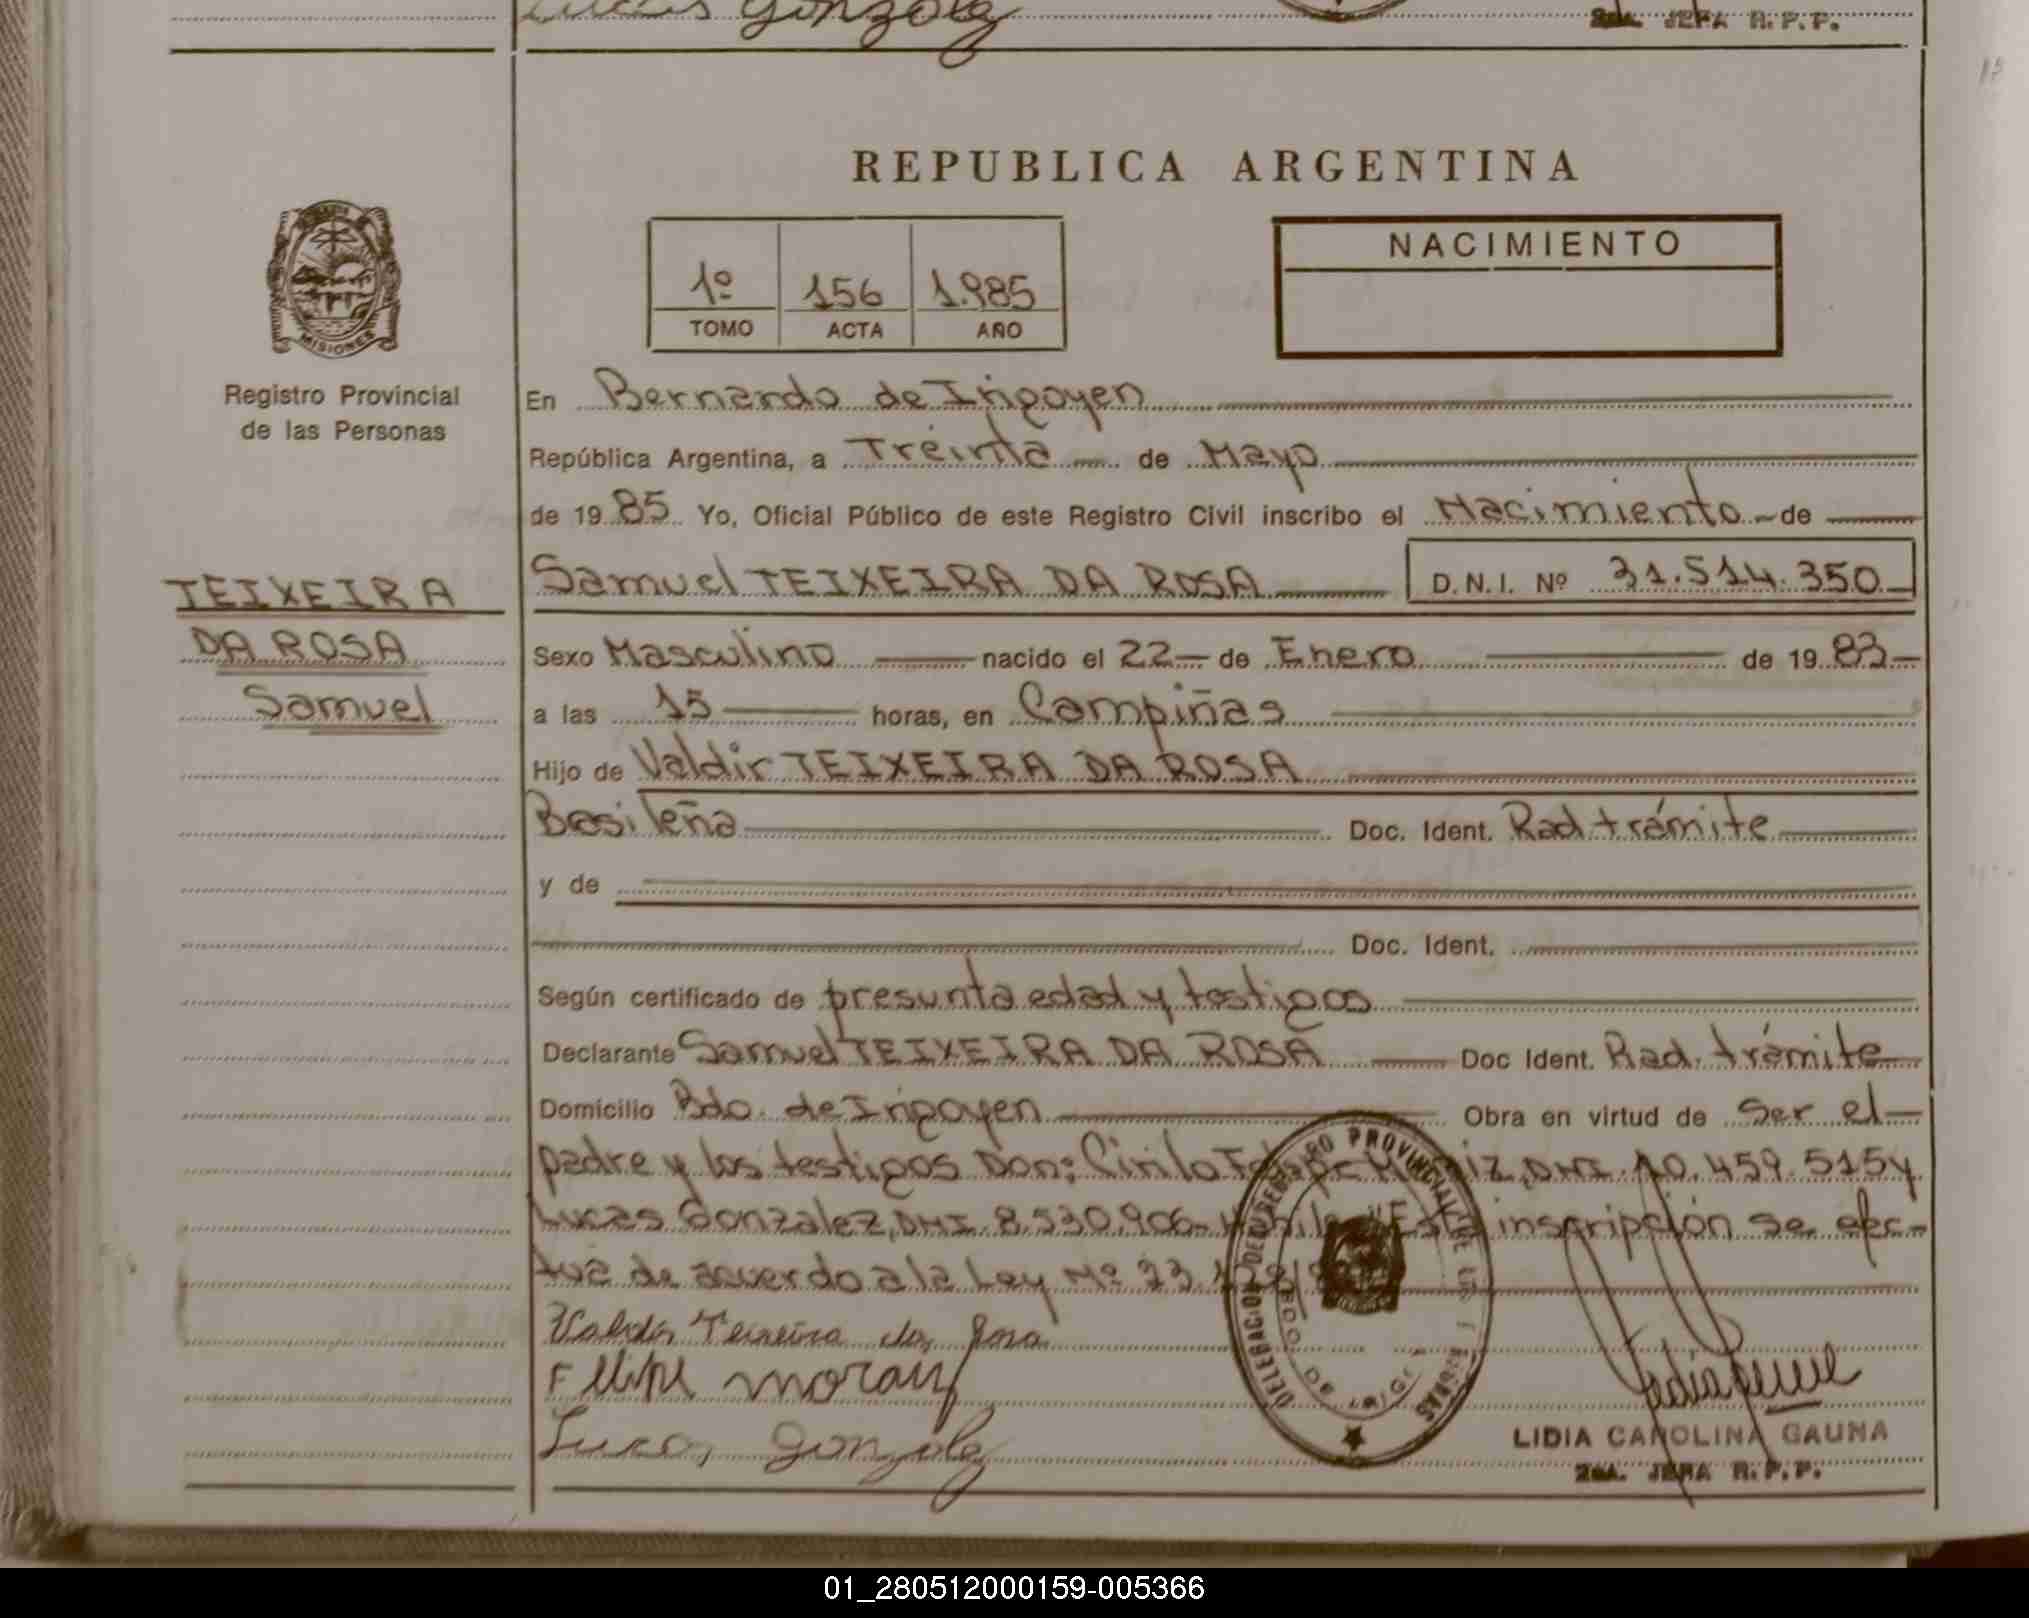 Lucas Gonzalez
2da. JEFA R.P.P.
REPUBLICA ARGENTINA
MISIONES
Registro Provincial
de las Personas
1º 156 1.985
TOMO ACTA AÑO
NACIMIENTO
En Bernardo de Irigoyen
República Argentina, a Treinta de Mayo
de 1985 Yo, Oficial Público de este Registro Civil inscribo el Nacimiento de
Samuel TEIXEIRA DA ROSA D.N.I. Nº 31.514.350
TEIXEIRA
DA ROSA
Samuel
Sexo Masculino nacido el 22 de Enero de 1983
a las 15 horas, en Campiñas
Hijo de Valdir TEIXEIRA DA ROSA
Brasileña Doc. Ident. Rad trámite
y de
Doc. Ident.
Según certificado de presunta edad y testigos
Declarante Samuel TEIXEIRA DA ROSA Doc Ident. Rad. trámite
Domicilio Bdo. de Irigoyen Obra en virtud de ser el
padre y los testigos Don: Cirilo DNI. 10.459.515 y
Lucas Gonzalez, DNI 8.530.906 "Esta inscripción se efec-
tua de acuerdo a la Ley Nº
Valdir Teixeira da Rosa
Lucas Gonzalez
DELEGACION DEL REGISTRO PROVINCIAL DE LAS PERSONAS
LIDIA CAROLINA GAUNA
2da. JEFA R.P.P.
01_280512000159-005366